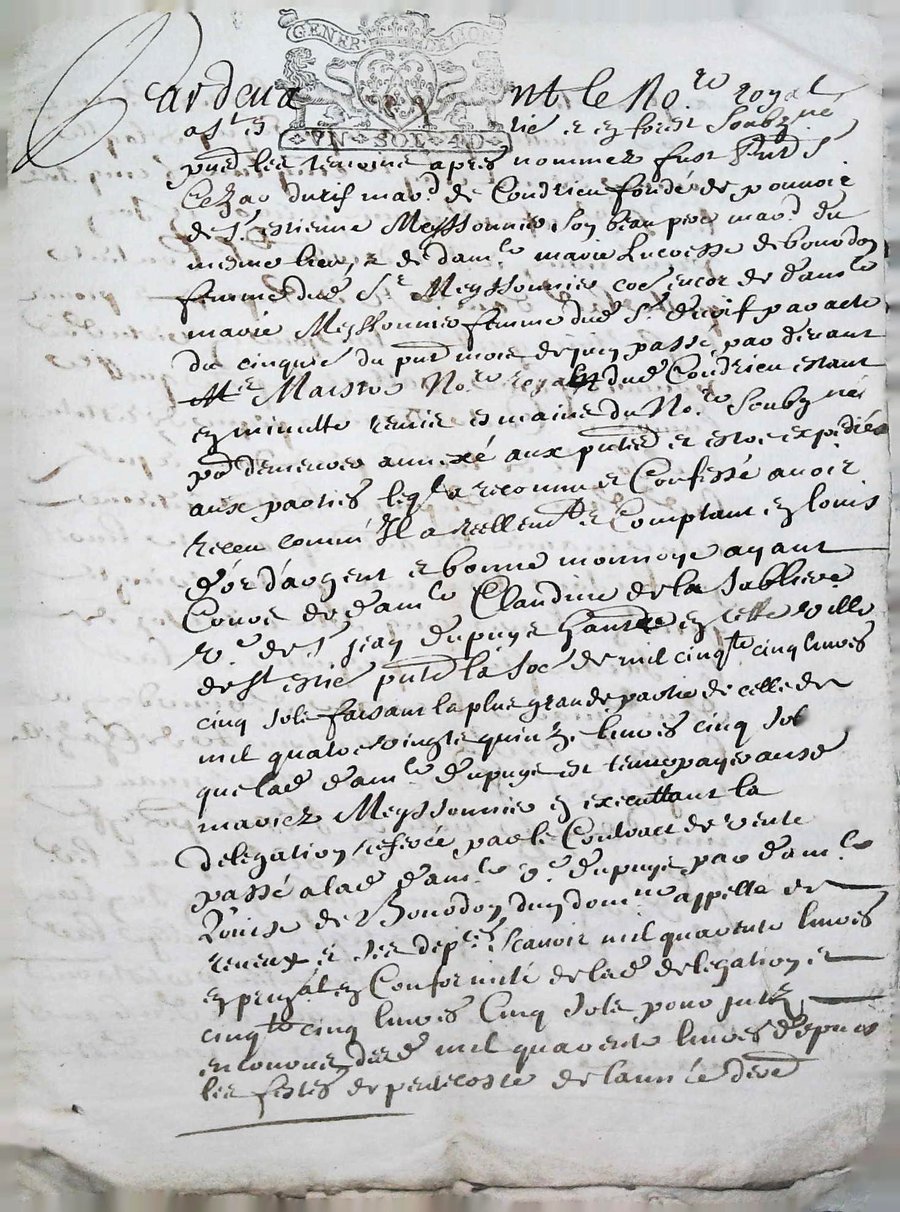 GENER DE LION
VN SOL 4D
Pardeua nt le No.re royal
a St E tie et forest Soubzné
pnts les temoins apres nommez fust Pnt Sr
Cezar durif mard de Condrieu fondé de pouuoir
de Sr estienne Meyssonnier son beau pere mard du
mesme lieu, & de dam.le marie Lucresse de bourdon
femme dud Sr Meyssonnier encor de dam.le
marie Meyssonnier femme dud Sr durif par acte
du cinquie du pnt mois de juin passé par deuant
Mr No.re royal dud Condrieu estant
en minutte remis es mains du No.re Soubzné
pr demeurer annexé aux pntes et estre expedié
aux parties leql a recommu et Confessé auoir
receu comm' Il a reellemt et Comptant en louis
d'or d'argent et bonne monnoye ayant
Cours de dam.le Claudine de la Sabliere
v.e de Sr jean dupuys en cette ville
de St estie pnte la soe de mil cinqte cinq liures
cinq sols faisant la plus grande partie de celle de
mil quatre vingts quinze liures cinq sol
que lad dam.le dupuys est tenue payer ausd
mariez Meyssonnier en executtant la
delegation referée par le Contract de vente
passé a lad dam.le v.e dupuys par dam.le
Louise de Bourdon dun dom.ne appellé de
reueux et ses dep.es Scauoir mil quarente liures
en prin.al en Conformité de lad delegation et
cinqte cinq liures Cinq sols pour jntz
encourus desd mil quarente liures depuis
les festes de pentecoste de lannée dere